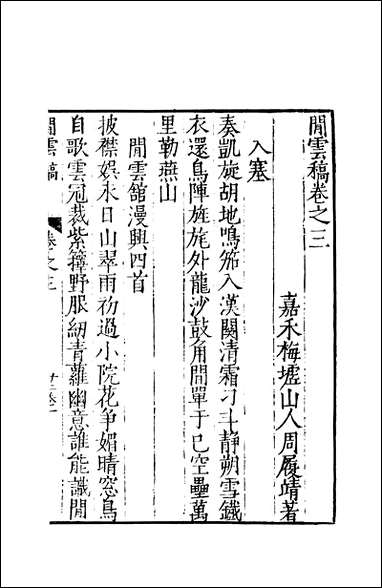 閒雲稿卷之三
嘉禾梅墟山人周履靖著
入塞
奏凱旋胡地鳴笳入漢關清霜刁斗靜朔雪鐵
衣還鳥陣旌旄外龍沙鼓角間單于已空壘萬
里勒燕山
閒雲館漫興四首
披襟娛永日山翠雨初過小院花爭媚晴窓鳥
自歌雲冠裁紫籜野服紉青蘿幽意誰能識閒
閒雲稿
卷之三